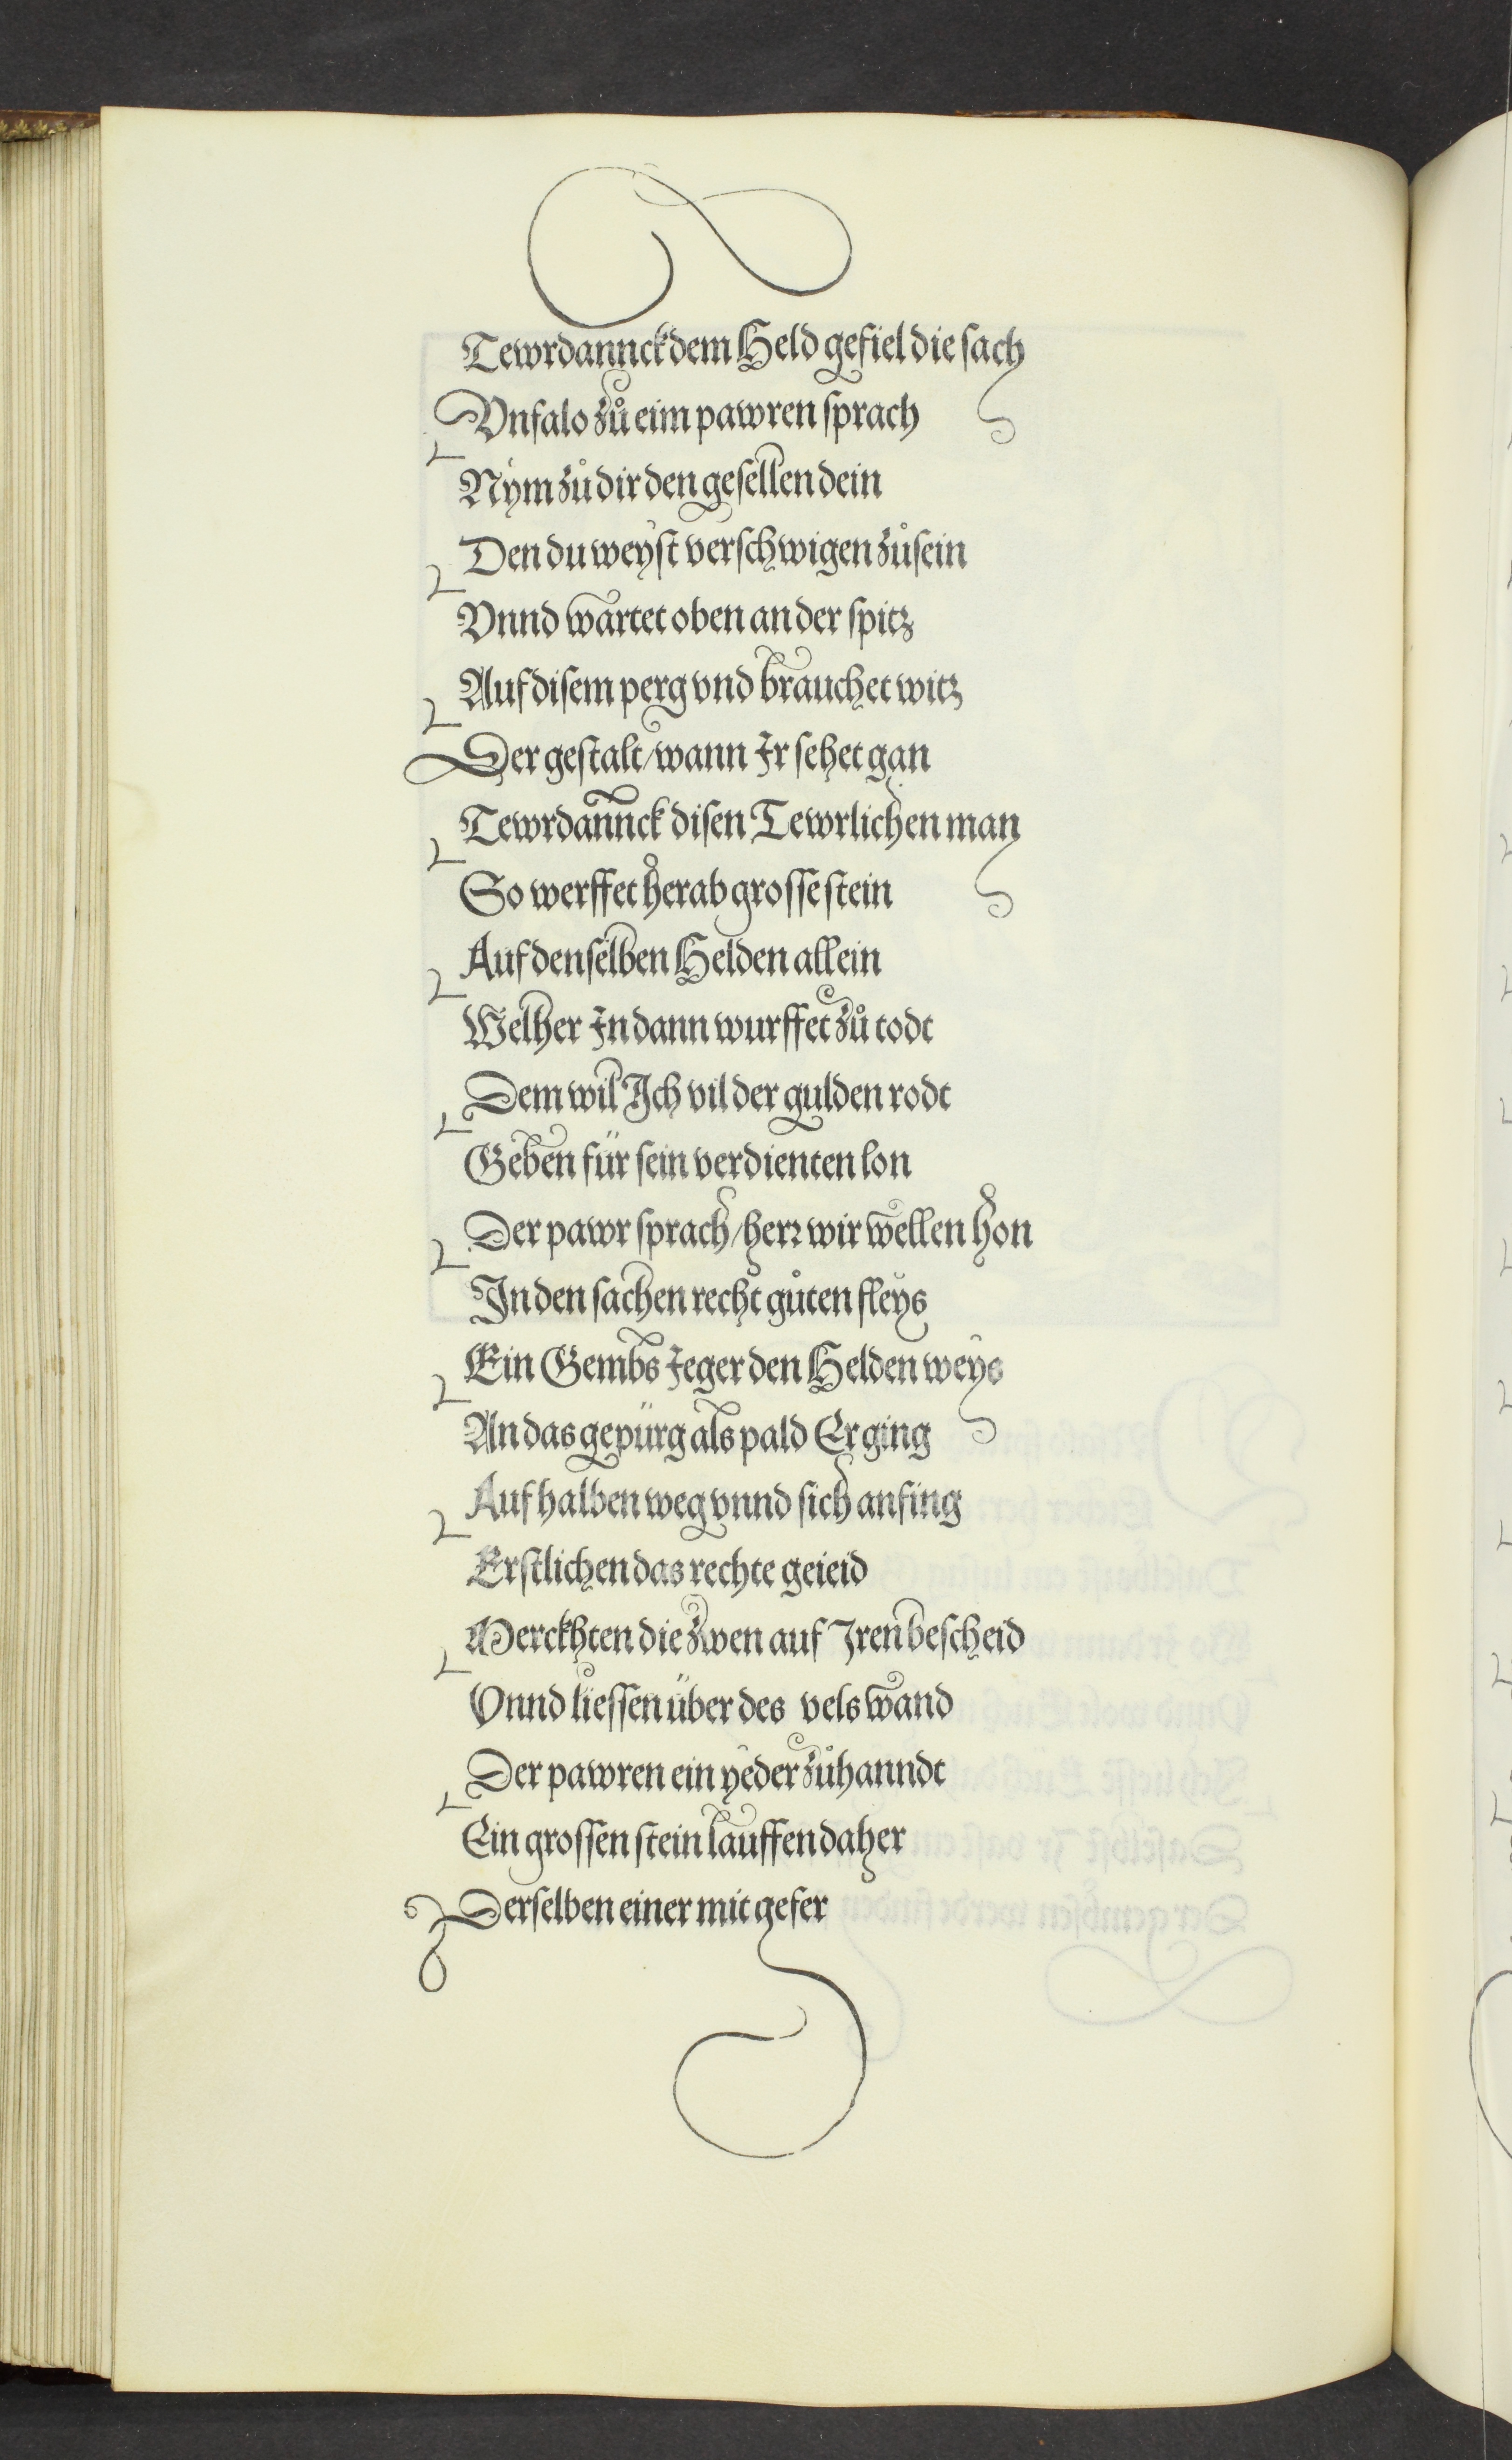 Tewrdannck dem Held gefiel die sach
Vnfalo zů eim pawren sprach
Nÿm zů dir den gesellen dein
Den du weÿst verschwigen zů sein
Vnnd wartet oben an der spitz
Auf disem perg vnd brauchet witz
Der gestalt / wann Ir sehet gan
Tewrdannck disen Tewrlichen man
So werffet herab grosse stein
Auf denselben Helden allein
Welher In dann wurffet zů todt
Dem wil Ich vil der gulden rodt
Geben für sein verdienten lon
Der pawr sprach / herr wir wellen hon
In den sachen recht gůten fleÿs
Ein Gembs Jeger den Helden weÿs
An das gepürg als pald Er ging
Auf halben weg vnnd sich anfing
Erstlichen das rechte geieid
Merckhten die zwen auf Iren bescheid
Vnnd liessen über des vels wand
Der pawren ein ÿeder zůhanndt
Ein grossen stein lauffen daher
Derselben einer mit gefer